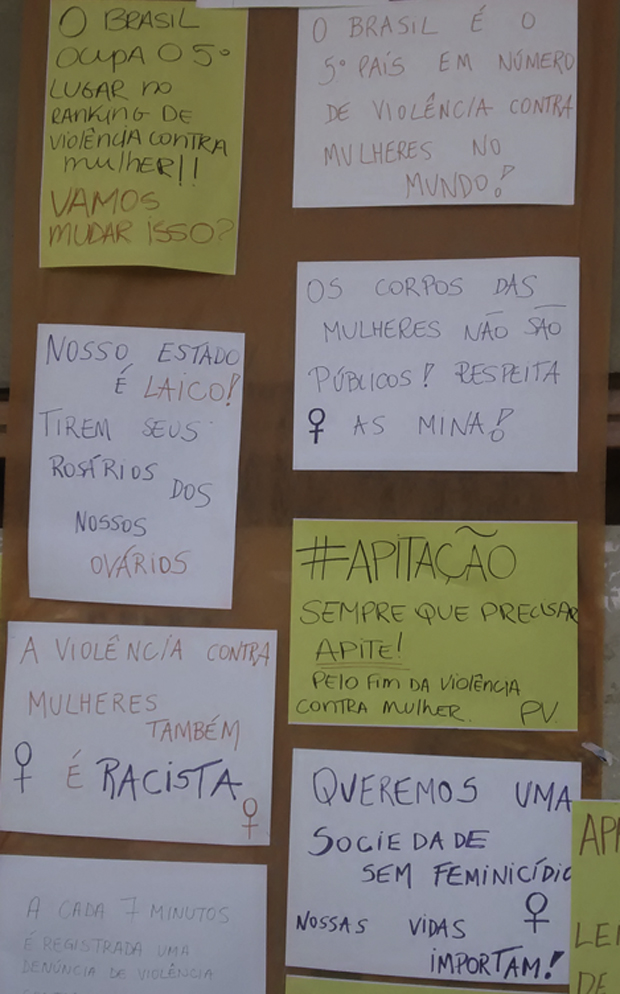 O BRASIL
OCUPA O 5º
LUGAR NO
RANKING DE
VIOLÊNCIA CONTRA
MULHER!!
VAMOS
MUDAR ISSO?
O BRASIL É O
5º PAÍS EM NÚMERO
DE VIOLÊNCIA CONTRA
MULHERES NO
MUNDO!
NOSSO ESTADO
É LAICO!
TIREM SEUS
ROSÁRIOS DOS
NOSSOS
OVÁRIOS
OS CORPOS DAS
MULHERES NÃO SÃO
PÚBLICOS! RESPEITA
♀ AS MINA!
#APITAÇÃO
SEMPRE QUE PRECISAR
APITE!
PELO FIM DA VIOLÊNCIA
CONTRA MULHER. PV.
A VIOLÊNCIA CONTRA
MULHERES
TAMBÉM
♀ É RACISTA ♀
QUEREMOS UMA
SOCIEDADE
SEM FEMINICÍDIO
NOSSAS VIDAS ♀
IMPORTAM!
A CADA 7 MINUTOS
É REGISTRADA UMA
DENÚNCIA DE VIOLÊNCIA
LEI
DE